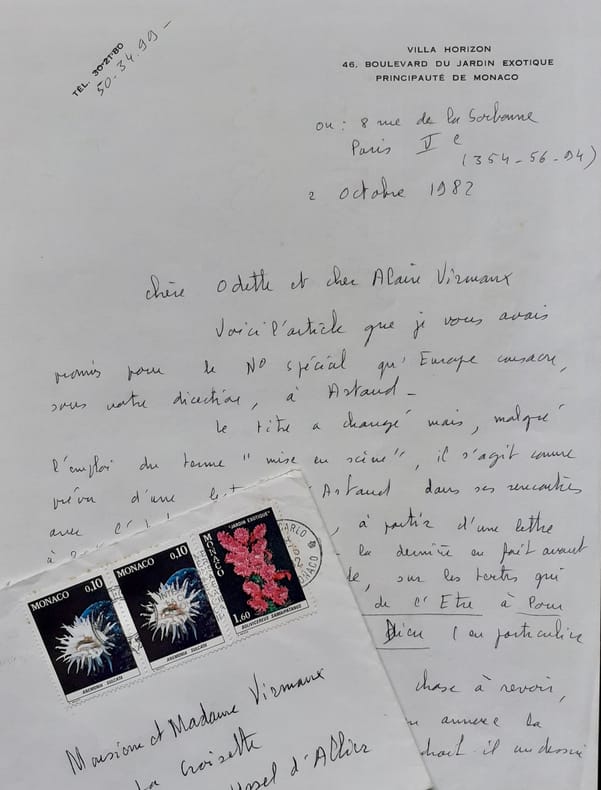 TÉL. 30-21-80
50-34.99-
VILLA HORIZON
46, BOULEVARD DU JARDIN EXOTIQUE
PRINCIPAUTÉ DE MONACO
ou : 8 rue de la Sorbonne
Paris Ve
(354-56-94)
2 octobre 1982
chère Odette et cher Alain Virmaux
Voici l'article que je vous avais
promis pour le N° spécial qu'Europe consacre,
sous votre direction, à Artaud-
Le titre a changé mais, malgré
l'emploi du terme "mise en scène", il s'agit comme
prévu d'une Artaud dans ses rencontres
avec
à partir d'une lettre
la dernière en fait avant
sur les textes qui
de l'Etre à Pour
Dieu (en particulier
chose à revoir,
annexe la
MONACO 0,10
ANEMONIA SULCATA
MONACO 0,10
ANEMONIA SULCATA
"JARDIN EXOTIQUE"
MONACO
1,60
Monsieur et Madame Virmaux
La Croisette
d'Allier